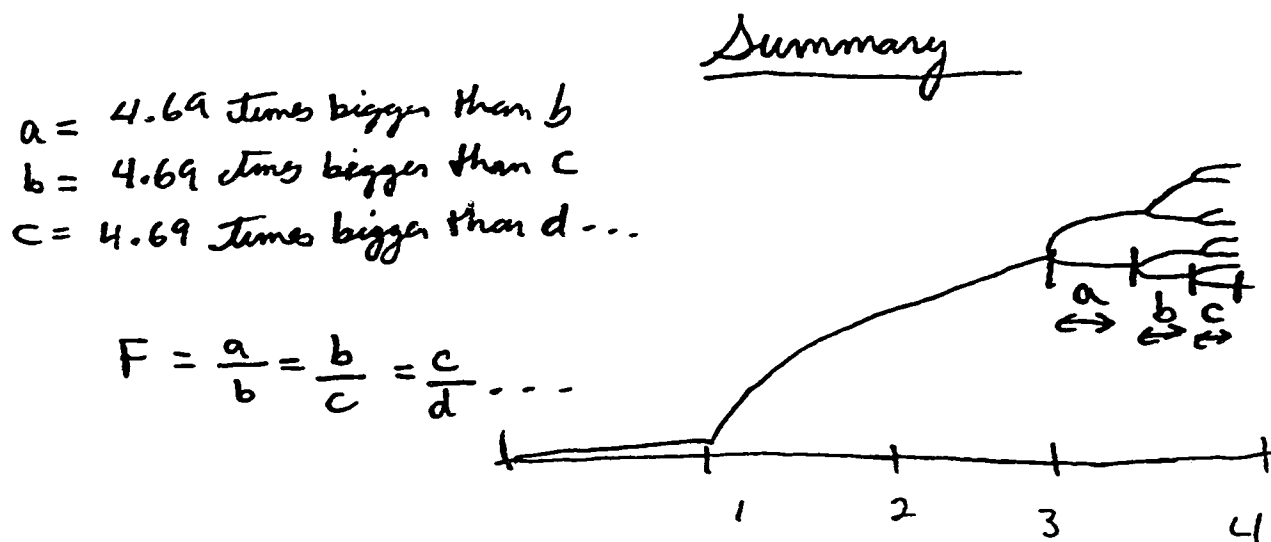 Summary
a = 4.69 times bigger than b
b = 4.69 times bigger than c
c = 4.69 times bigger than d ...
F = a/b = b/c = c/d ...
a
b
c
1 2 3 4